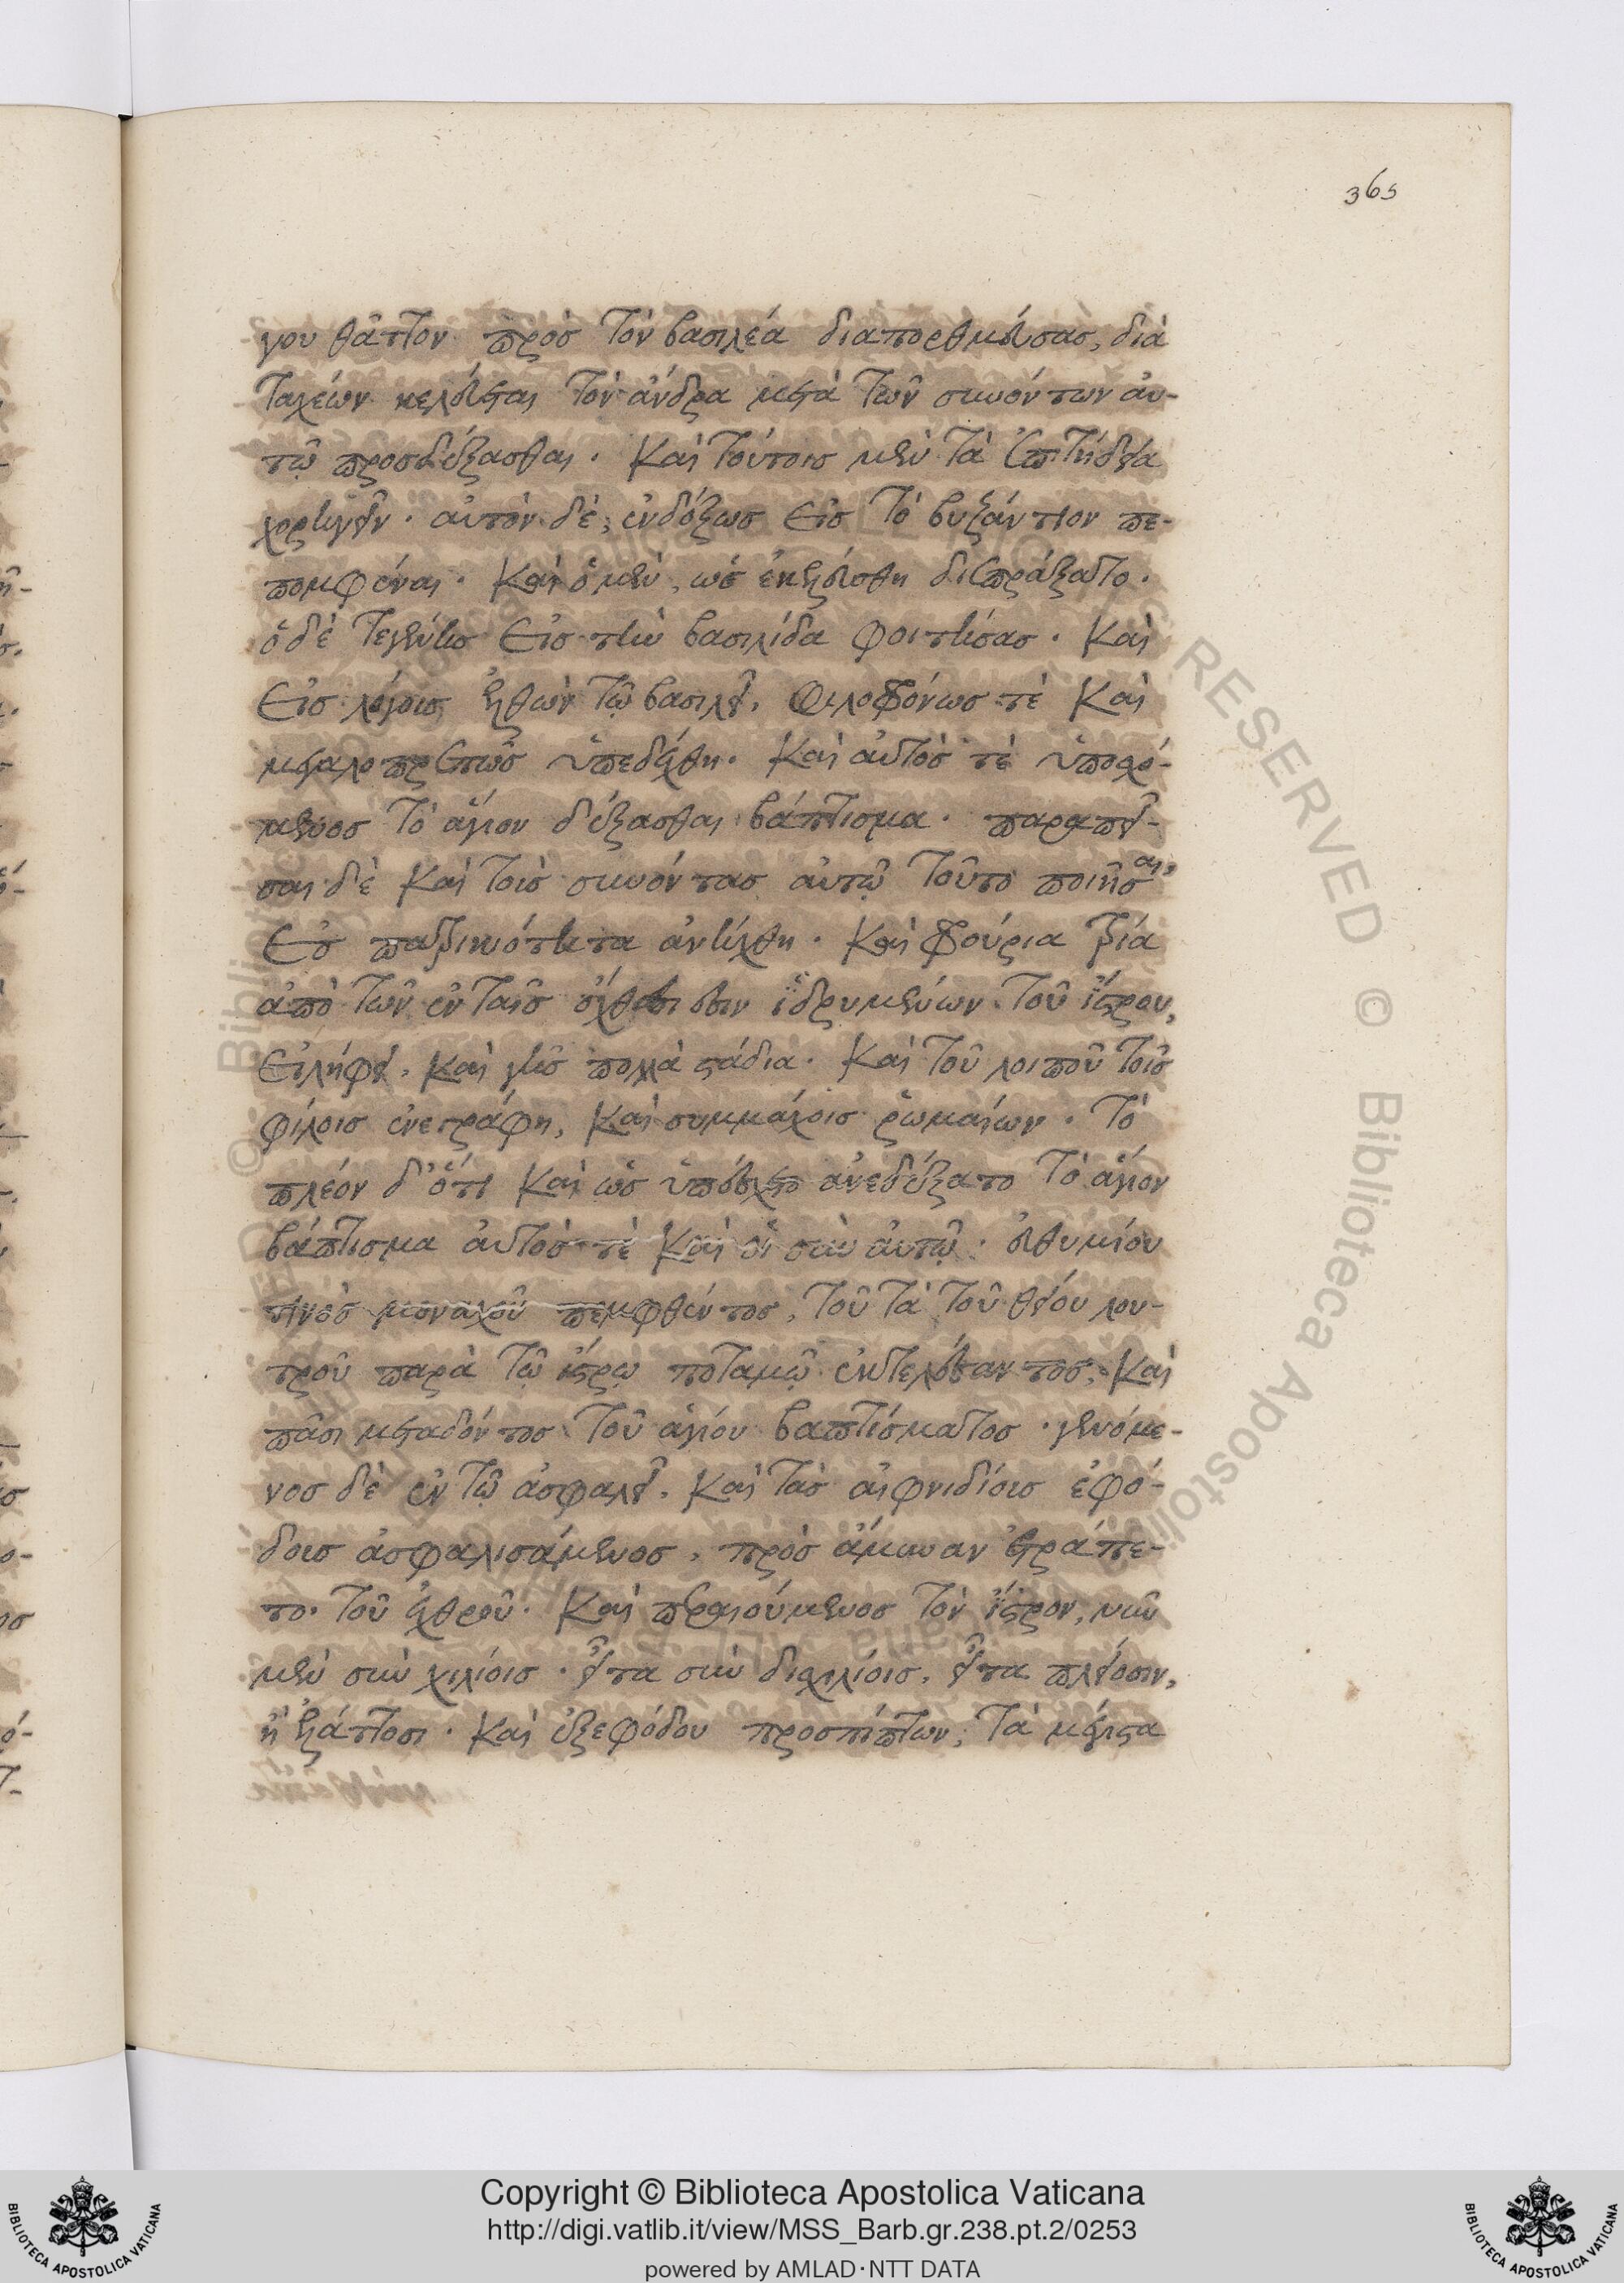 365
γου θᾶττον πρὸς τὸν βασιλέα διαπορθμεύσας, διὰ
ταχέων κελεύεται τὸν ἄνδρα μετὰ τῶν συνόντων αὐ-
τῷ προσδέξασθαι. καὶ τούτοις μὲν τὰ ἐπιτήδεια
χορηγεῖν. αὐτὸν δὲ, ἐνδόξως εἰς τὸ βυζάντιον πε-
πομφέναι. καὶ ὁ μὲν, ὡς ἐκελεύσθη διεπράξατο.
ὁ δὲ τεγένης εἰς τὴν βασιλίδα φοιτήσας. καὶ
εἰς λόγους ἐλθὼν τῷ βασιλεῖ, φιλοφρόνως τὲ καὶ
μεγαλοπρεπῶς ὑπεδέχθη. καὶ αὐτός τὲ ὑποσχό-
μενος τὸ ἅγιον δέξασθαι βάπτισμα. παραπεῖ-
σαι δὲ καὶ τοὺς συνόντας αὐτῷ τοῦτο ποιῆσαι,
εἰς πατρικιότητα ἀνήχθη. καὶ φρούρια τρία
ἀπὸ τῶν ἐν ταῖς ὄχθαις ἱδρυμένων τοῦ ἴστρου,
εἰλήφει, καὶ γῆς πολλὰ στάδια. καὶ τοῦ λοιποῦ τοῖς
φίλοις ἐνεγράφη, καὶ συμμάχοις ῥωμαίων. τὸ
πλέον δ' ὅτι καὶ ὡς ὑπέσχετο ἀνεδέξατο τὸ ἅγιον
βάπτισμα αὐτός τὲ καὶ οἱ σὺν αὐτῷ. εὐθυμίου
τινὸς μοναχοῦ πεμφθέντος, τοῦ τὰ τοῦ θείου λου-
τροῦ παρὰ τῷ ἴστρῳ ποταμῷ ἐκτελέσαντος, καὶ
πᾶσι μεταδόντος τοῦ ἁγίου βαπτίσματος. γενόμε-
νος δὲ ἐν τῷ ἀσφαλεῖ, καὶ τὰς αἰφνιδίους ἐφό-
δους ἀσφαλισάμενος, πρὸς ἄμυναν ἐτράπε-
το τοῦ ἐχθροῦ. καὶ περαιούμενος τὸν ἴστρον, νῦν
μὲν σὺν χιλίοις. εἶτα σὺν δισχιλίοις, εἶτα πλείοσιν,
ἢ ἐλάττοσι. καὶ ἐξεφόδου προσπίπτων, τὰ μέγιστα
© Biblioteca Apostolica Vaticana ALL RIGHTS RESERVED
Copyright © Biblioteca Apostolica Vaticana
http://digi.vatlib.it/view/MSS_Barb.gr.238.pt.2/0253
powered by AMLAD·NTT DATA
BIBLIOTECA APOSTOLICA VATICANA
BIBLIOTECA APOSTOLICA VATICANA